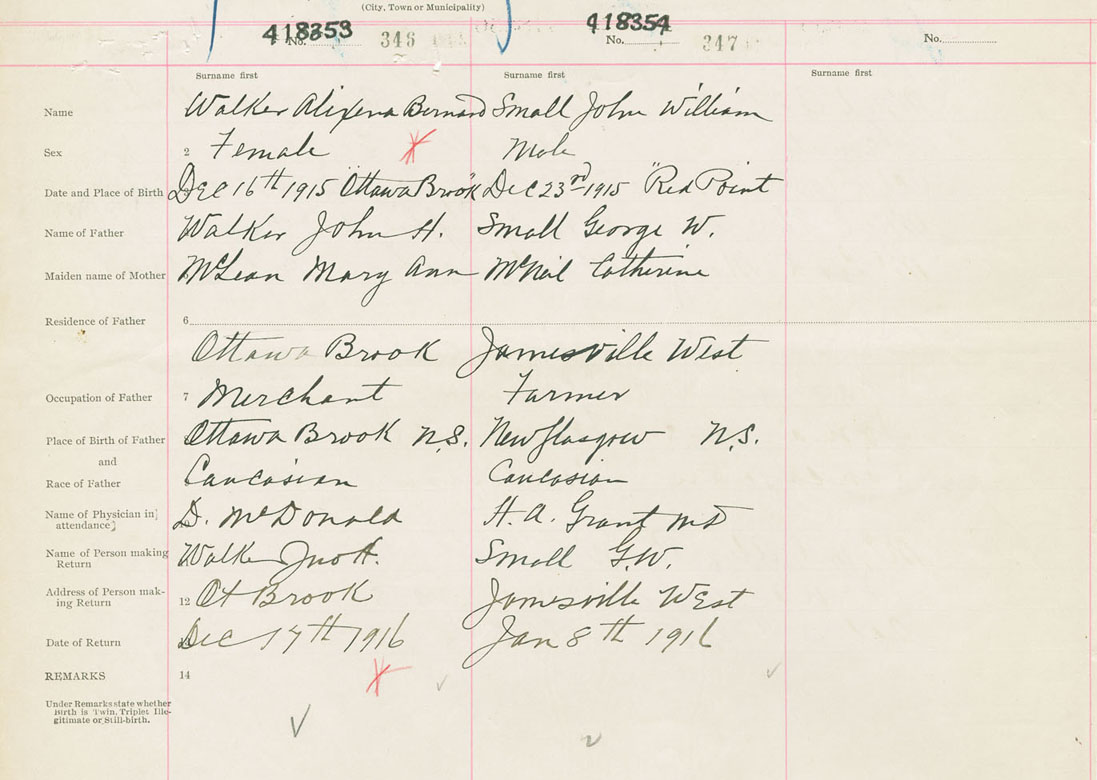 (City, Town or Municipality)
418353 418354
No. 346 No. 347 No.
Surname first Surname first Surname first
Name Walker Alixena Bernard Small John William
Sex 2 Female Male
Date and Place of Birth Dec 16th 1915 Ottawa Brook Dec 23rd 1915 "Red Point"
Name of Father Walker John H. Small George W.
Maiden name of Mother McLean Mary Ann McNeil Catherine
Residence of Father 6
Ottawa Brook Jamesville West
Occupation of Father 7 Merchant Farmer
Place of Birth of Father Ottawa Brook N.S. New Glasgow N.S.
and
Race of Father Caucasian Caucasian
Name of Physician in attendance D. McDonald H. A. Grant MD
Name of Person making Return Walker Jno H. Small G.W.
Address of Person mak-
ing Return 12 Ot Brook Jamesville West
Date of Return Dec 17th 1916 Jan 8th 1916
REMARKS 14
Under Remarks state whether
Birth is Twin, Triplet Ille-
gitimate or Still-birth.